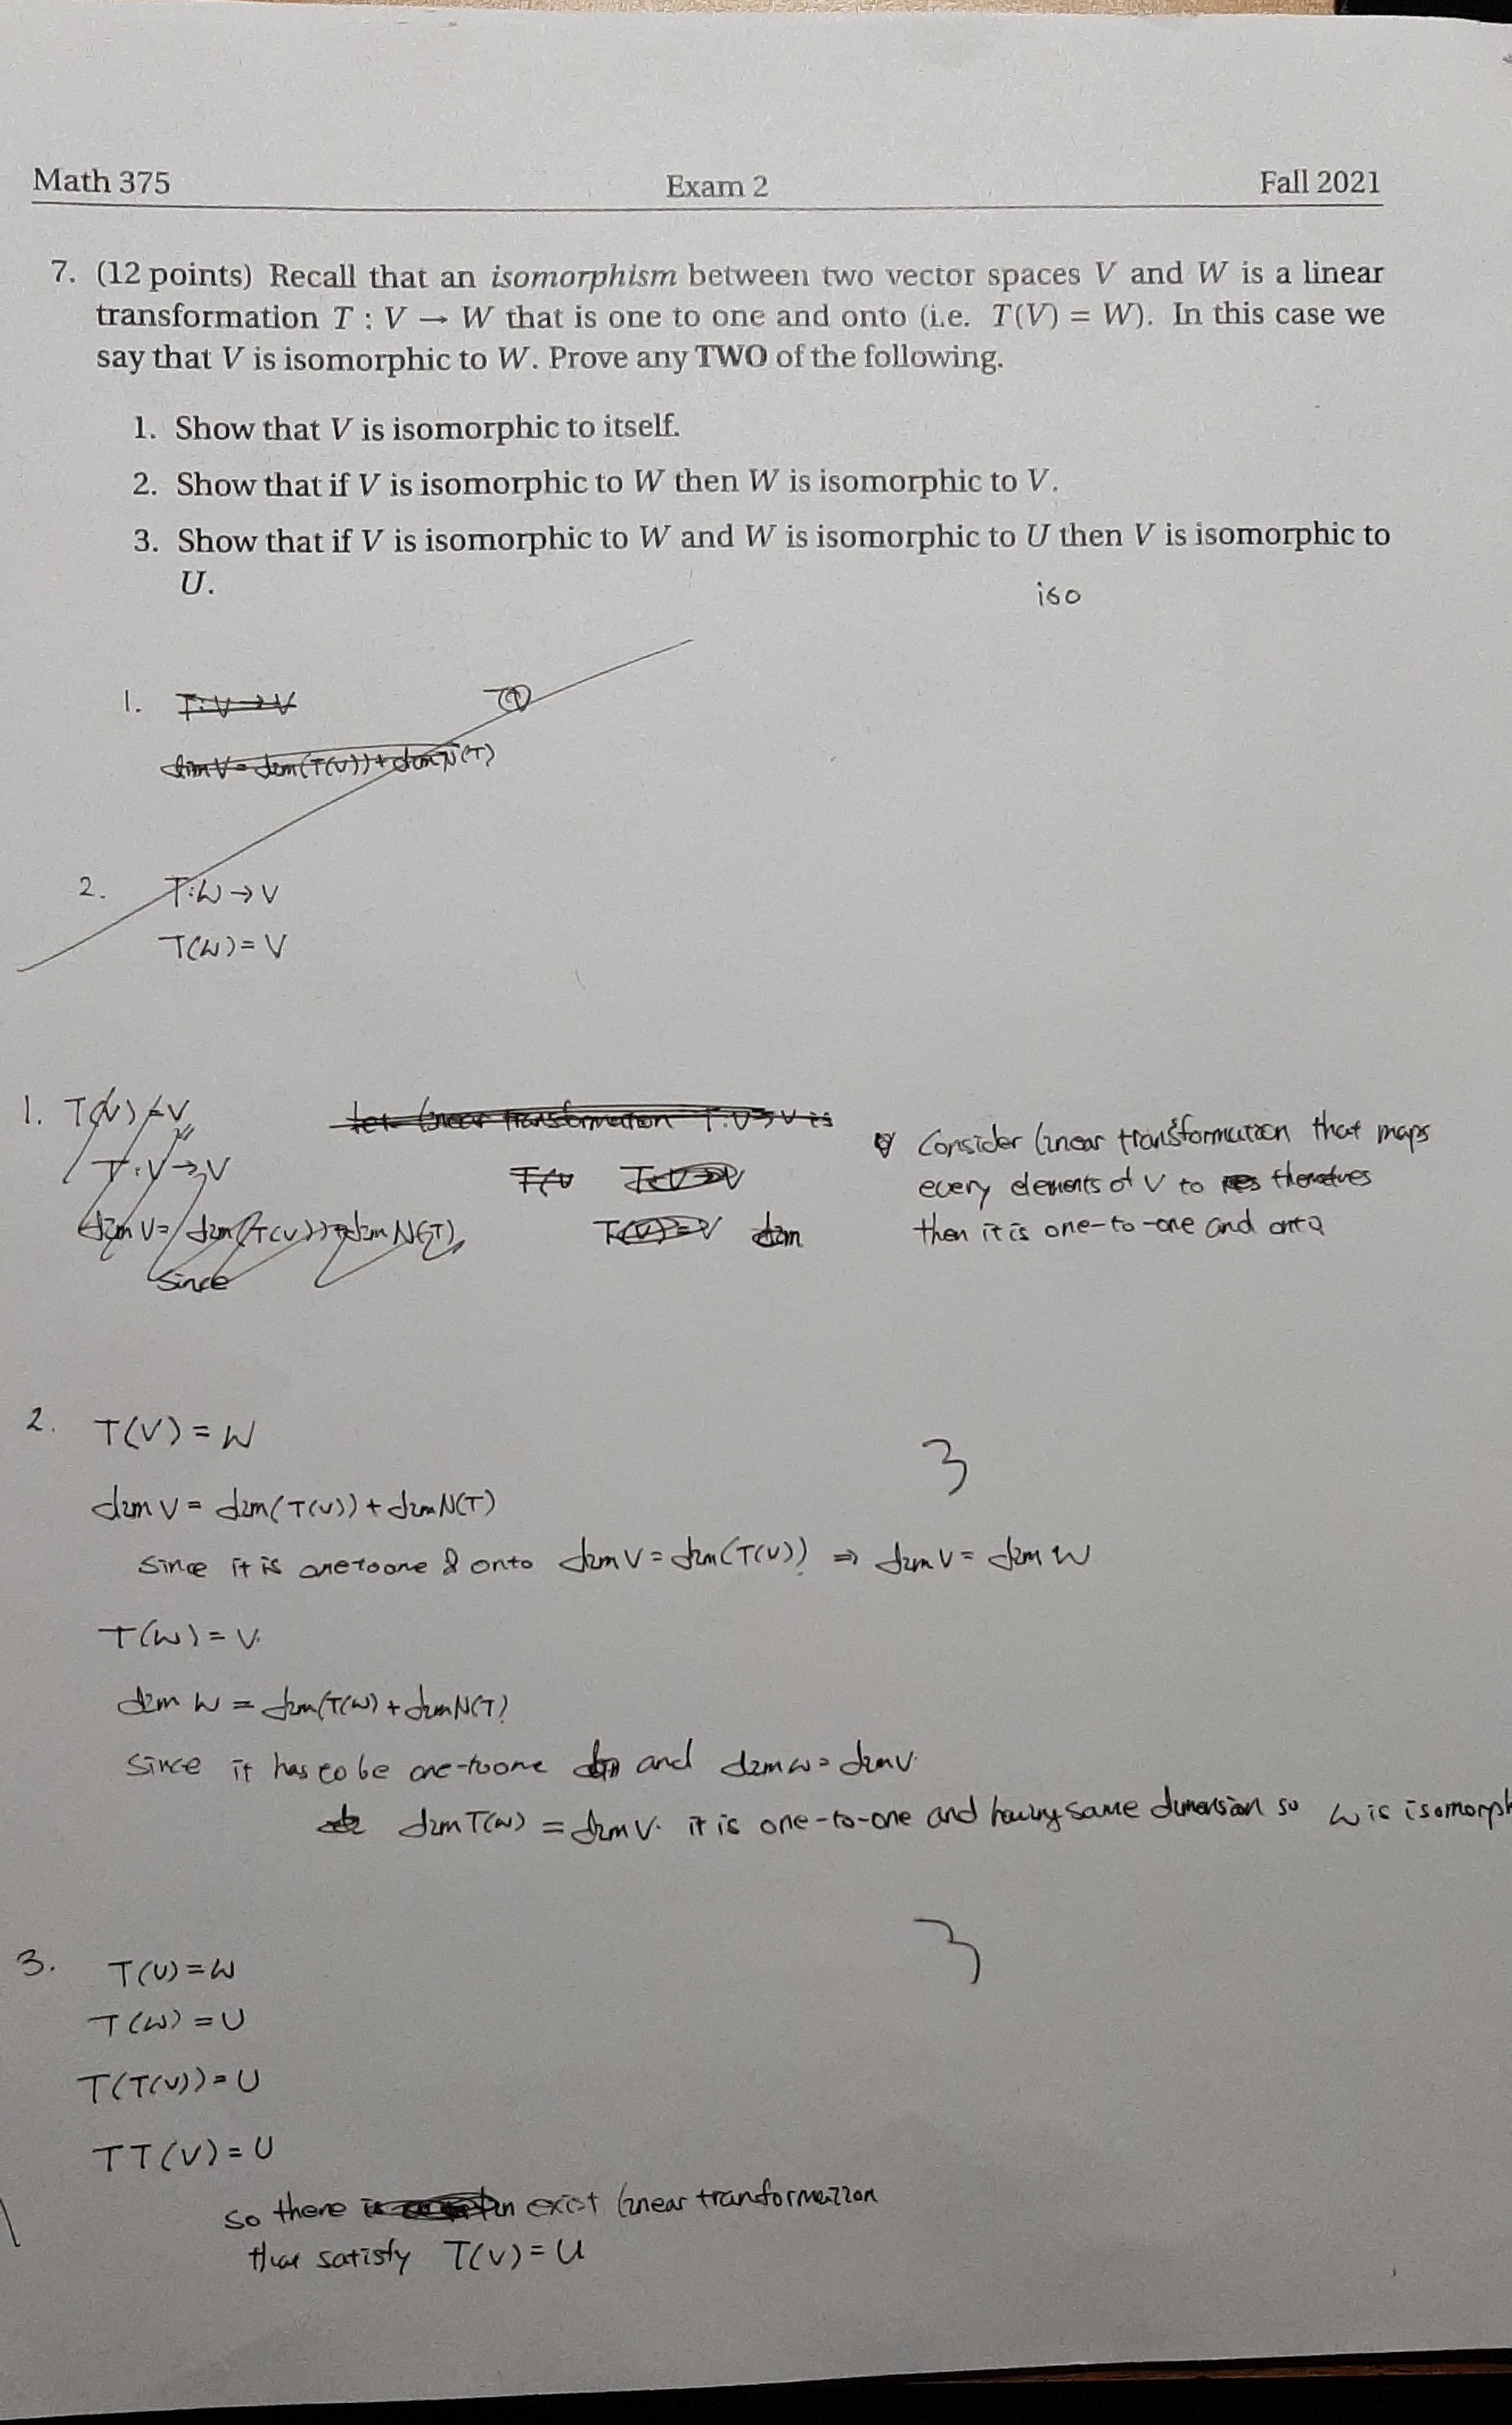 Math 375 Exam 2 Fall 2021
7. (12 points) Recall that an isomorphism between two vector spaces V and W is a linear
transformation T : V → W that is one to one and onto (i.e. T(V) = W). In this case we
say that V is isomorphic to W. Prove any TWO of the following.
1. Show that V is isomorphic to itself.
2. Show that if V is isomorphic to W then W is isomorphic to V.
3. Show that if V is isomorphic to W and W is isomorphic to U then V is isomorphic to
U.
iso
1. T:V→V
dim V = dim(T(V)) + dim N(T)
2. T:W→V
T(W)=V
1. T(V)=V
let linear transformation T:V→V is
Consider linear transformation that maps
T:V→V
T(V T:V→V
every elements of V to themselves
dim V = dim(T(V)) + dim N(T)
T(V)=V dim
then it is one-to-one and onto
Since
2. T(V) = W
3
dim V = dim(T(V)) + dim N(T)
Since it is one to one & onto dim V = dim(T(V)) ⇒ dim V = dim W
T(W) = V
dim W = dim(T(W) + dim N(T)
Since it has to be one-to one and dim W = dim V
dim T(W) = dim V. it is one-to-one and having same dimension so W is isomorph
3. T(V) = W
3
T(W) = U
T(T(V)) = U
TT(V) = U
so there exist linear transformation
that satisfy T(V) = U